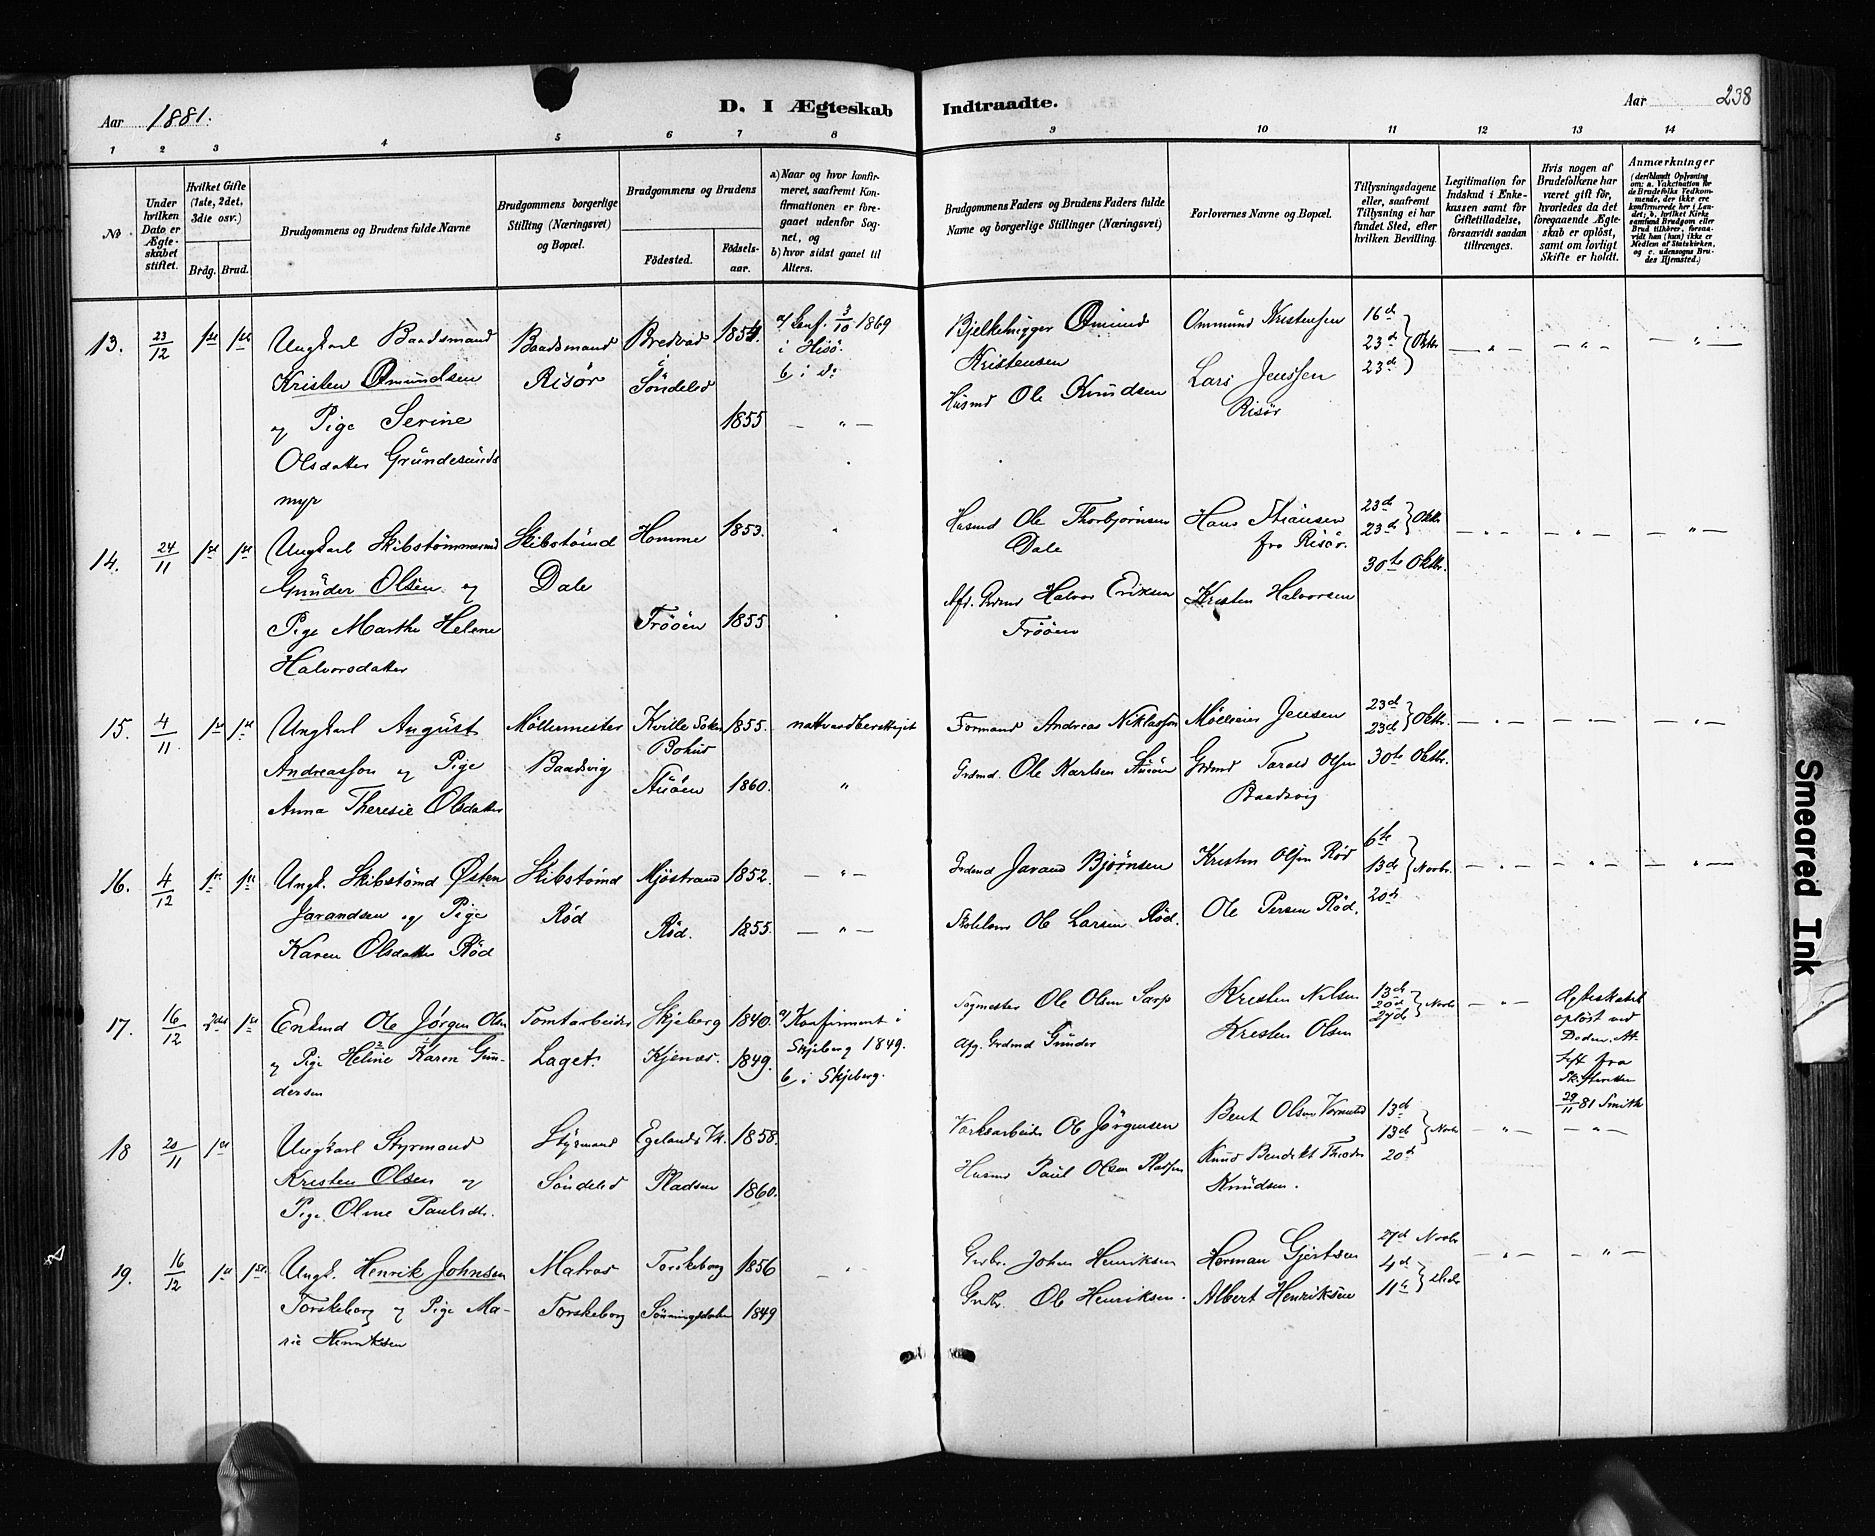 Aar 1881.
D. I Ægteskab Indtraadte.
Aar 238
1 2 3 4 5 6 7 8 9 10 11 12 13 14
No
Under hvilken Dato er Ægteskabet stiftet.
Hvilket Gifte (1ste, 2det, 3die osv.)
Brdg. Brud.
Brudgommens og Brudens fulde Navne
Brudgommens borgerlige Stilling (Næringsvei) og Bopæl.
Brudgommens og Brudens
Födested.
Födsels-aar.
a) Naar og hvor konfirmeret, saafremt Konfirmationen er foregaaet udenfor Sognet, og
b) hvor sidst gaaet til Alters.
Brudgommens Faders og Brudens Faders fulde Navne og borgerlige Stillinger (Næringsvei)
Forlovernes Navne og Bopæl.
Tillysningsdagene eller, saafremt Tillysning ei har fundet Sted, efter hvilken Bevilling.
Legitimation for Indskud i Enkekassen samt for Giftetilladelse, forsaavidt saadan tiltrænges.
Hvis nogen af Brudefolkene har været gift för, hvorledes da det foregaaende Ægteskab er oplöst, samt om lovligt Skifte er holdt.
Anmærkninger (deriblandt Oplysning om: a. Vakcination for de Brudefolks Vedkommende, der ikke ere konfirmerede her i Landet; b. hvilket Kirkesamfund Brudgom eller Brud tilhörer, forsaavidt han (hun) ikke er Medlem af Statskirken, og c. udensogns Brudes Hjemsted.)
13. 23/12 1ste 1ste Ungkarl Baadsmand Baadsmand Bredvad 1854. a/ Conf. 3/10 1869 Bjelkehugger Omund Ommund Kristensen 16de
Kristen Omundsen Risör i Söndeled i Hisö. Kristensen 23de Oktbr
b i d: Husmd Ole Knudsen Lars Jenssen 23de
og Pige Serine 1855 Risör
Olsdatter Gründesunds
myr
14. 24/11 1ste 1ste Ungkarl Skibstömmermd Skibstömd Homme 1853. Husmd Ole Thorbjörnsen Hans 23de
Gunder Olsen og Dale Dale fra Risör. 23de Oktbr
30te Oktbr.
Pige Marthe Helene Frööen 1855 Halvor Eriksen Kristen Halvorsen
Halvorsdatter Frööen
15. 4/11 1ste 1ste Ungkarl August Möllemester Kville Sokn 1855. natverdberettiget Formand Andreas Niklasson Jensen 23de
Andreasson og Pige Baadsvig Bohus 23de Oktbr.
Anna Theresie Olsdatter Stuöen 1860. Grdmd. Ole Karlsen Stuöen Grdmd Tarald Olsen 30te Oktbr.
Baadsvig
16. 4/12 1ste 1ste Ungk. Skibstömd Østen Skibstömd Mjöstrand 1852. Grdmd Jarand Bjørnsen Kristen Olsen Rød 6te
Jarandsen og Pige Rød 13de Novbr.
Karen Olsdatter Rød Rød. 1855. Ole Larsen Rød. Ole Persen Rød. 20de
17. 16/12 2det 1ste Enkemd Ole Jørgen Olsen Tomtarbeider Skjeberg 1840. a/ Konfirmert i Sagmester Ole Olsen Sarp Kristen Nilsen 13de
og Pige Heline Karen Gun- Laget. Kjenas. 1849. Skjeberg 1849. Afg. Grdmd Gunder Kristen Olsen 20de Novbr
dersen b i Skjeberg. 27de
Ægteskabet
oplöst ved
Döden. Attest fra
29/11 81 Smith
18 20/11 1ste Ungkarl Styrmand Styrmand Egelands Vk. 1858. Værksarbeider Ole Jörgensen Bent Olsen 13de
Kristen Olsen og Söndeled Pladsen 1860. Husmd Paul Olsen Pladsen Knud Bendikt 13de Novbr
Pige Oline Paulsdtr. Knudsen. 20de
19. 16/12 1ste 1ste Ungk. Henrik Johnsen Matros Torskeborg 1856 Grdbr. John Henriksen Herman Gjertsen 27de Novbr
Torskeborg og Pige Ma- Torskeborg Sönningsdalen 1849 Grdbr. Ole Henriksen. Albert Henriksen 4de
rie Henriksen 11te Decbr
Smeared Ink